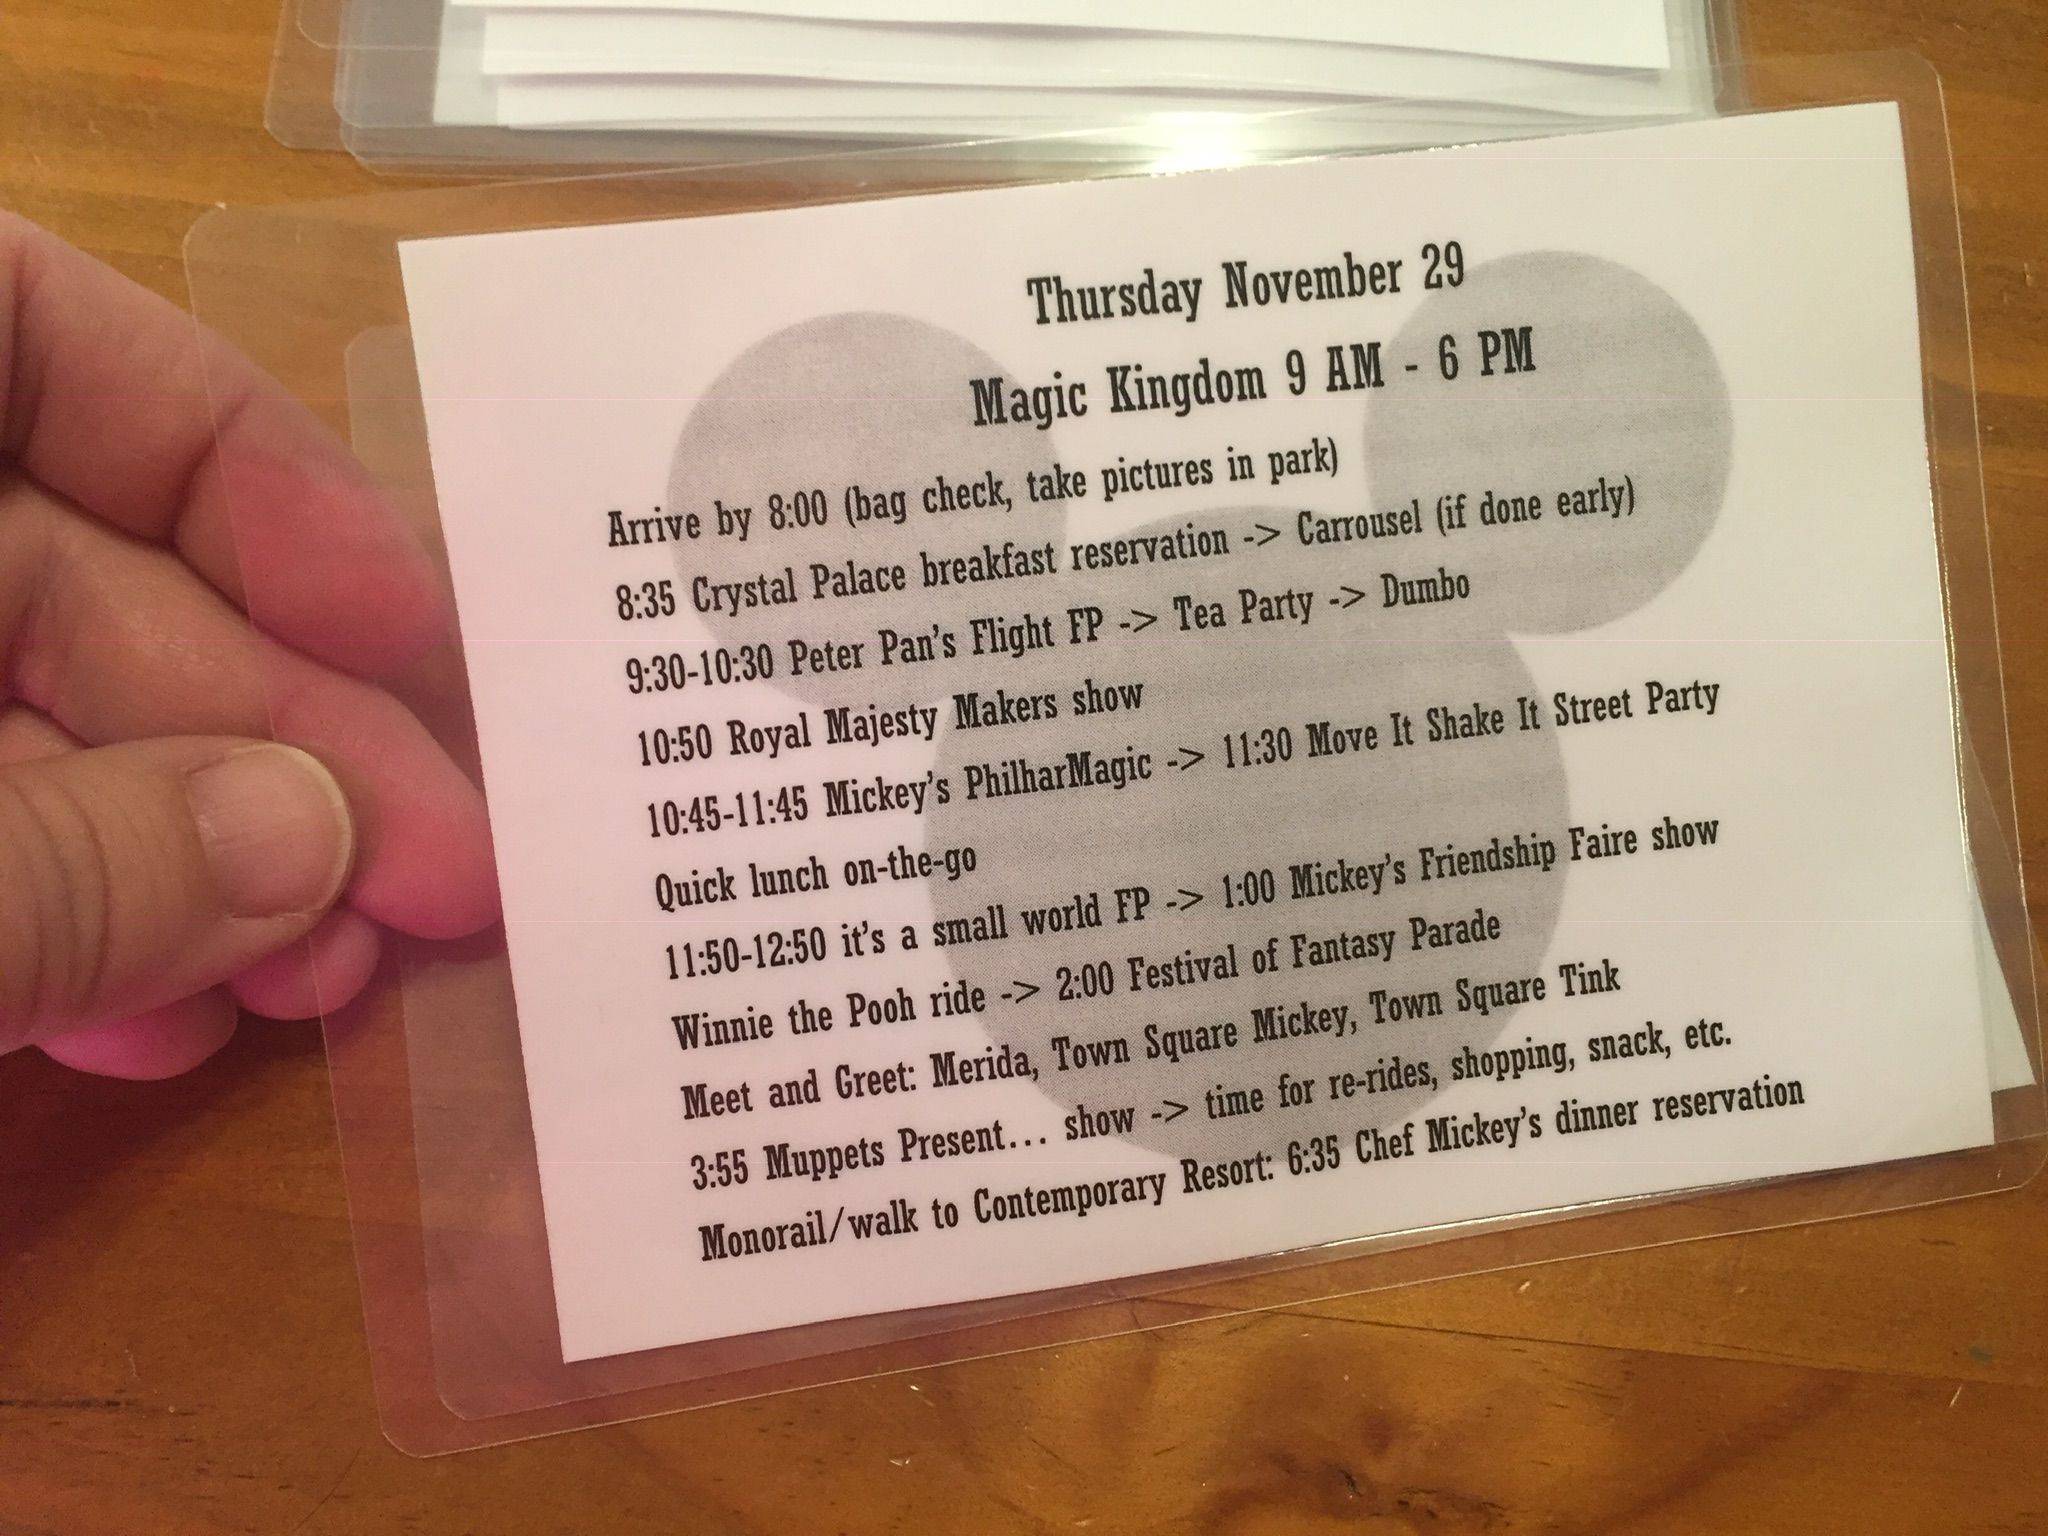 Thursday November 29
Magic Kingdom 9 AM - 6 PM
Arrive by 8:00 (bag check, take pictures in park)
8:35 Crystal Palace breakfast reservation -> Carrousel (if done early)
9:30-10:30 Peter Pan's Flight FP -> Tea Party -> Dumbo
10:50 Royal Majesty Makers show
10:45-11:45 Mickey's PhilharMagic -> 11:30 Move It Shake It Street Party
Quick lunch on-the-go
11:50-12:50 it's a small world FP -> 1:00 Mickey's Friendship Faire show
Winnie the Pooh ride -> 2:00 Festival of Fantasy Parade
Meet and Greet: Merida, Town Square Mickey, Town Square Tink
3:55 Muppets Present... show -> time for re-rides, shopping, snack, etc.
Monorail/walk to Contemporary Resort: 6:35 Chef Mickey's dinner reservation